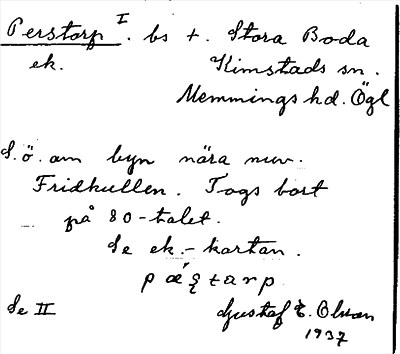 Perstorp I. bs t. Stora Boda
ek. Kimstads sn.
Memmings hd. Ögl
S. ö. om byn nära nuv.
Fridkullen. Togs bort
på 80-talet.
Se ek.-kartan.
Se II Gustaf E. Olsson
1937